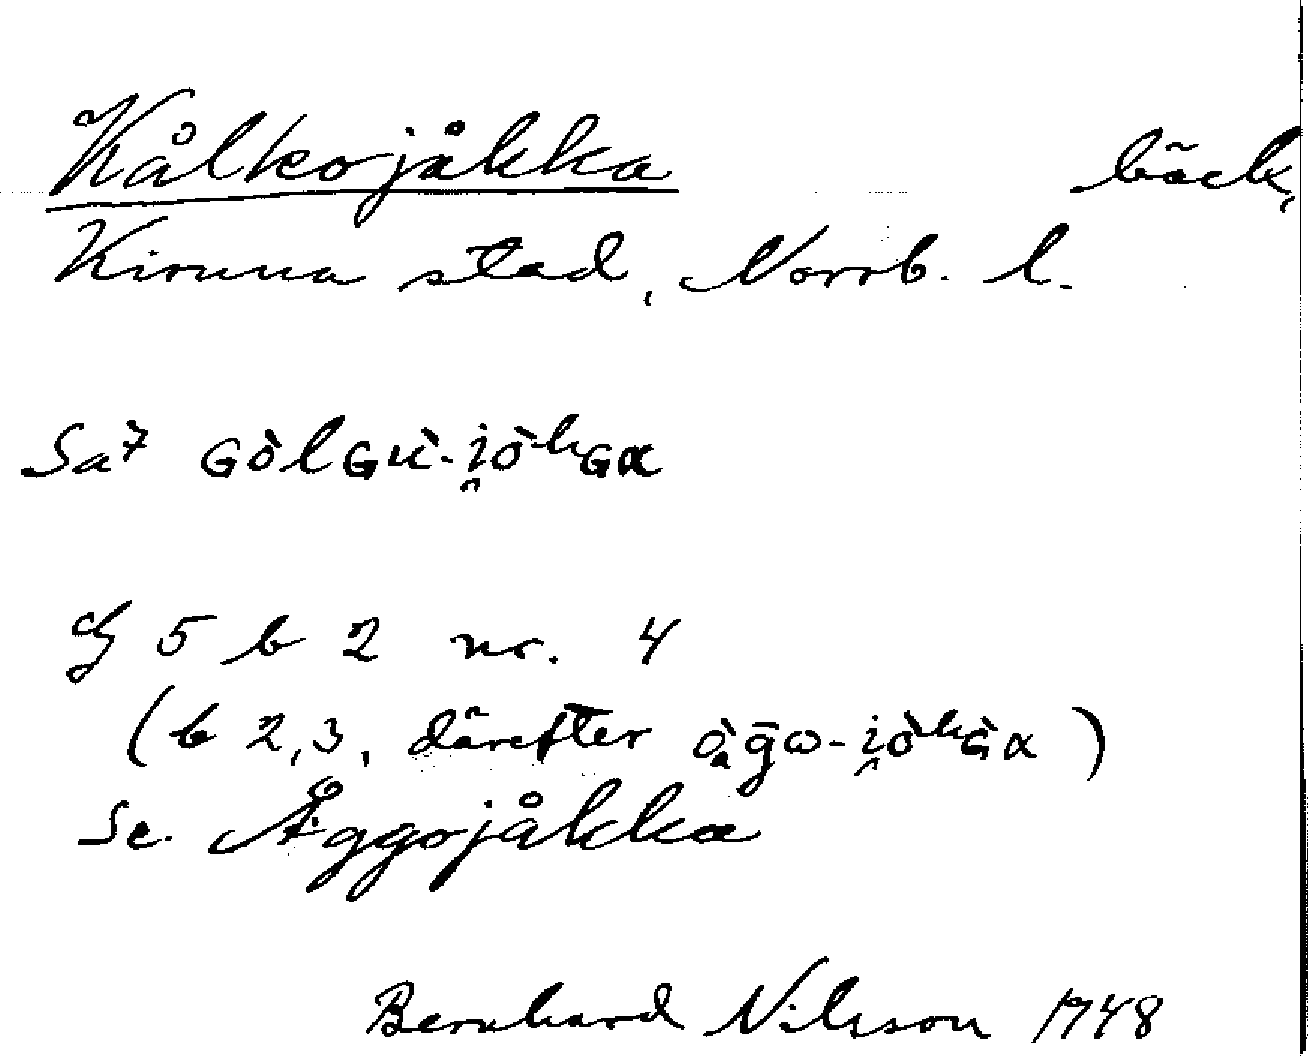 Kålkojåkka bäck,
Kiruna stad, Norrb. l.
Sa7 ɢòlɢù-i̯òʰɢɑ
G 5 b 2 nr. 4
(b 2,3, därefter
Se. Äggojåkka
Bernhard Nilsson 1948